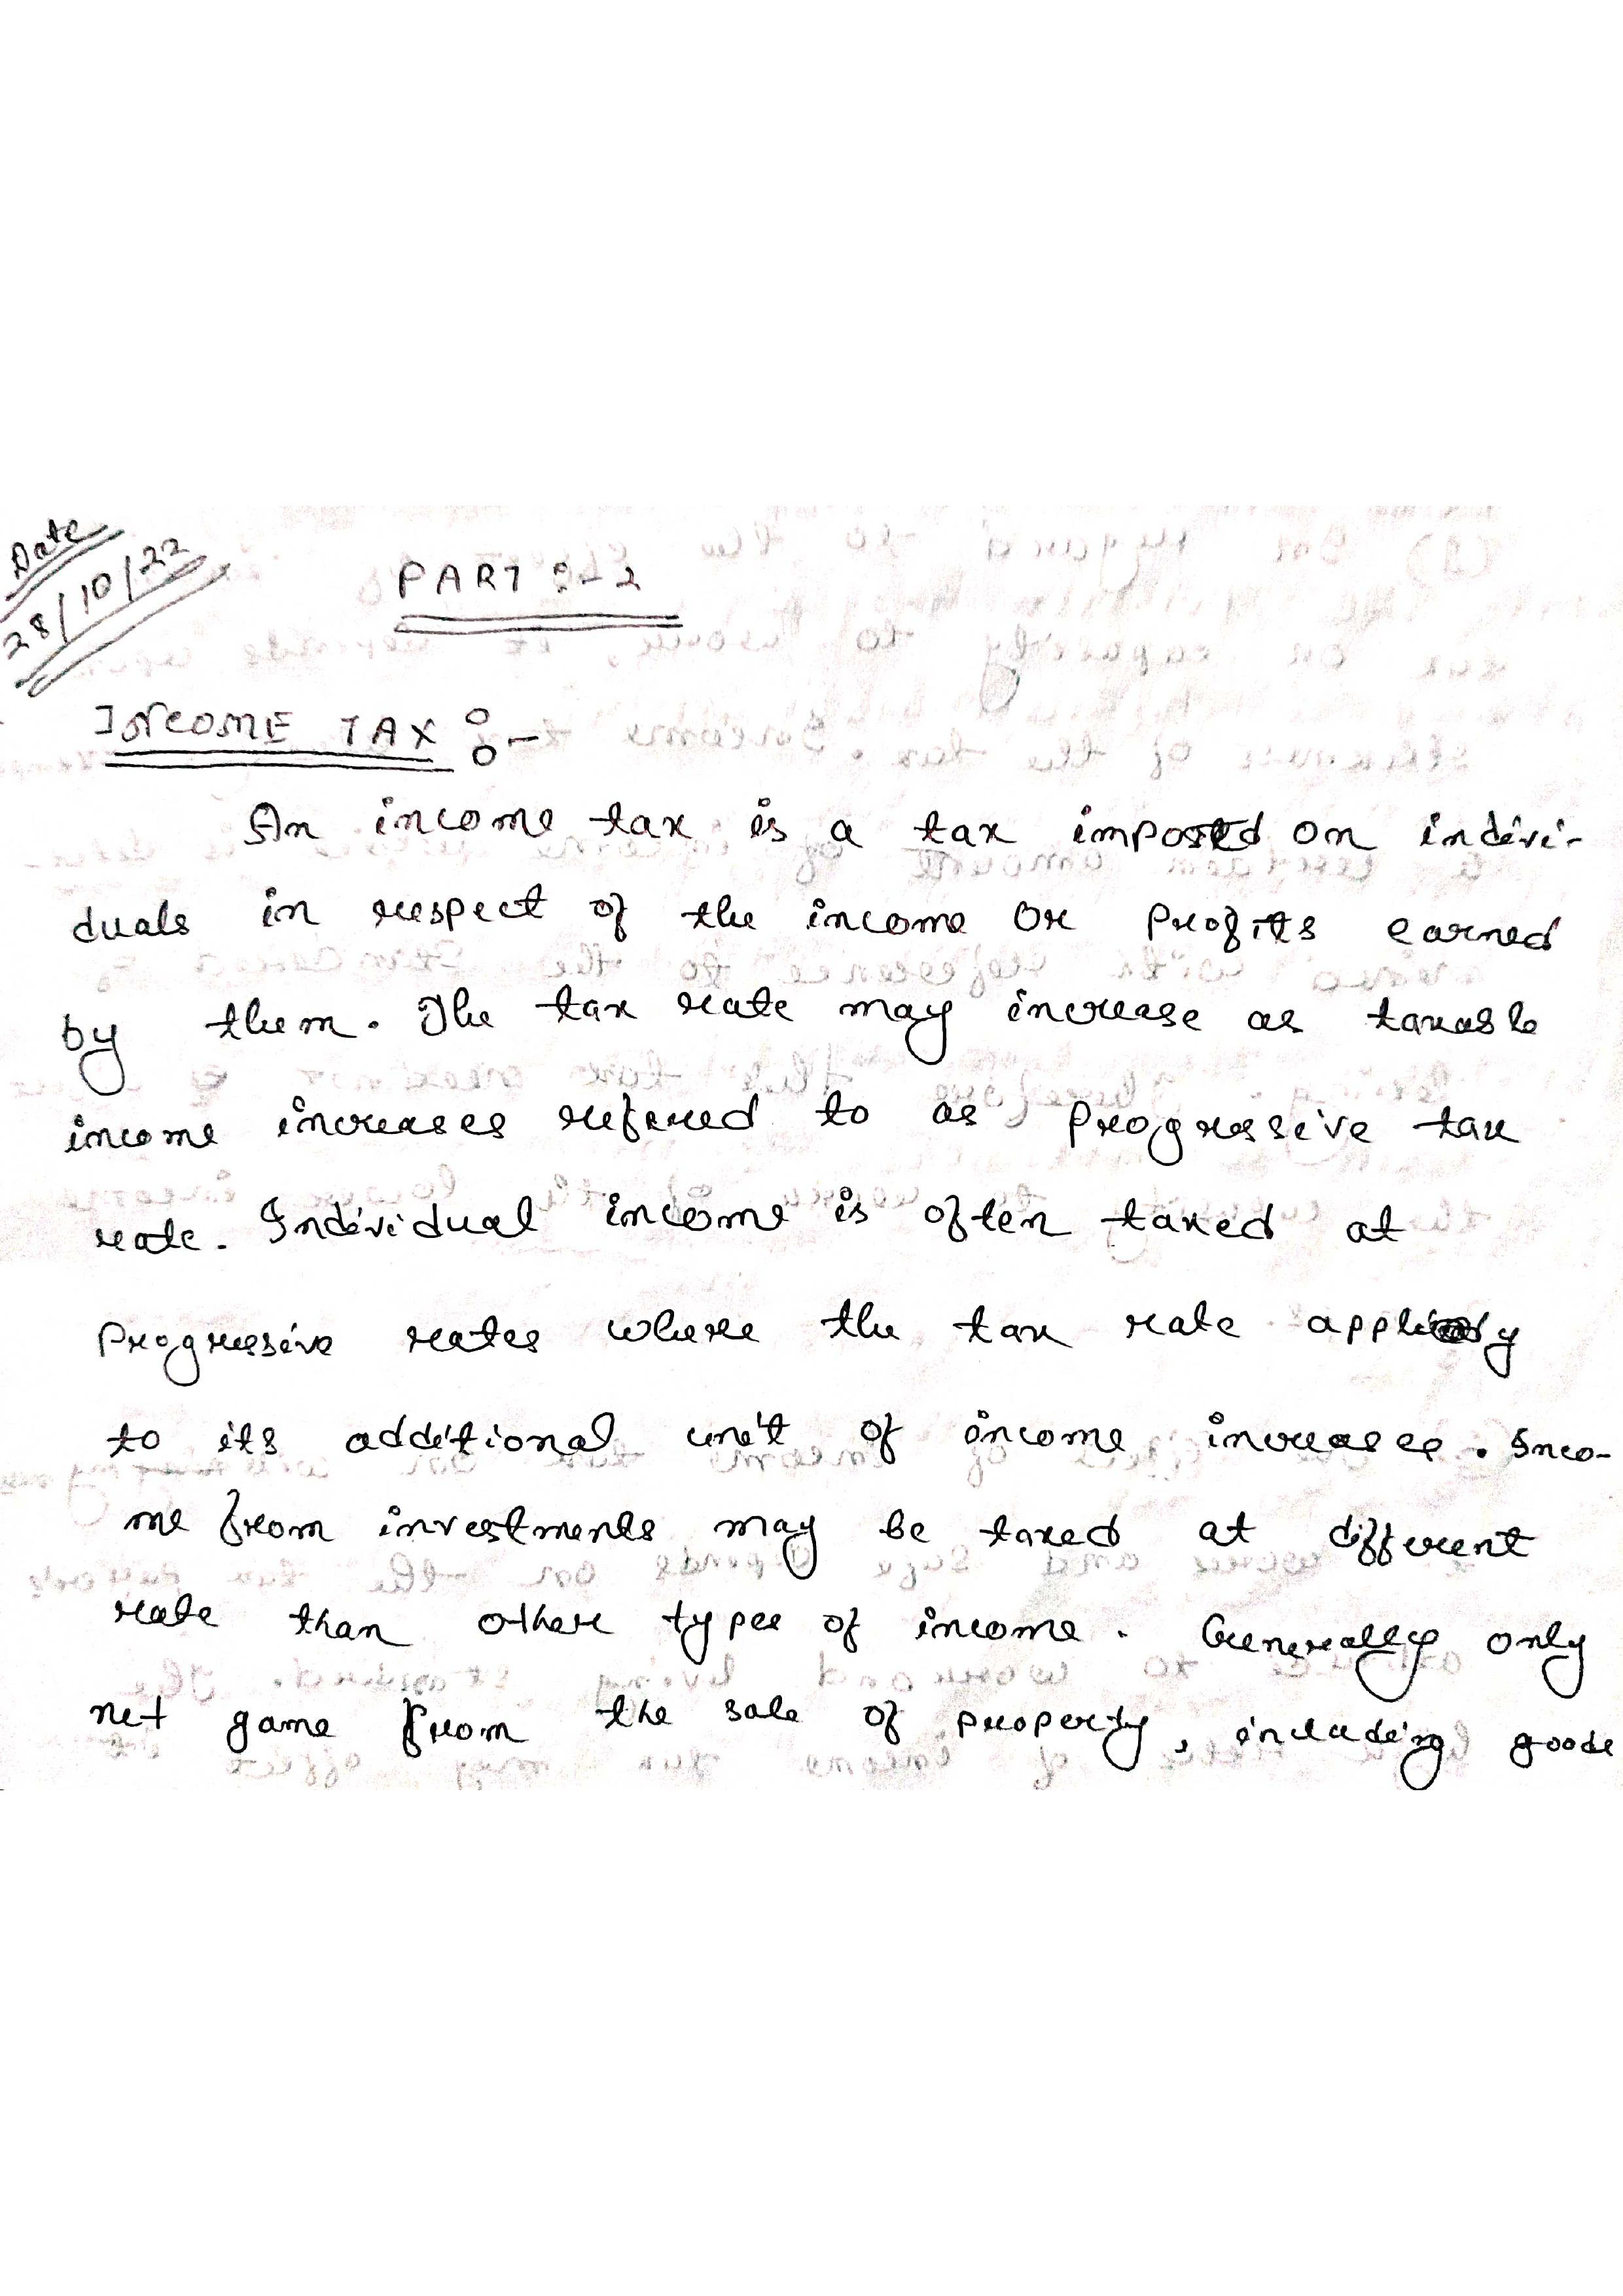 Date
28/10/22
PART :- 2
INCOME TAX :-
An income tax is a tax imposed on indivi-
duals in respect of the income or profits earned
by them. The tax rate may increase as taxable
income increases refered to as progressive tax
rate. Individual income is often taxed at
progressive rates where the tax rate apply
to its additional unit of income increases. Inco-
me from investments may be taxed at different
rate than other types of income. Generally only
net game from the sale of property, including goods